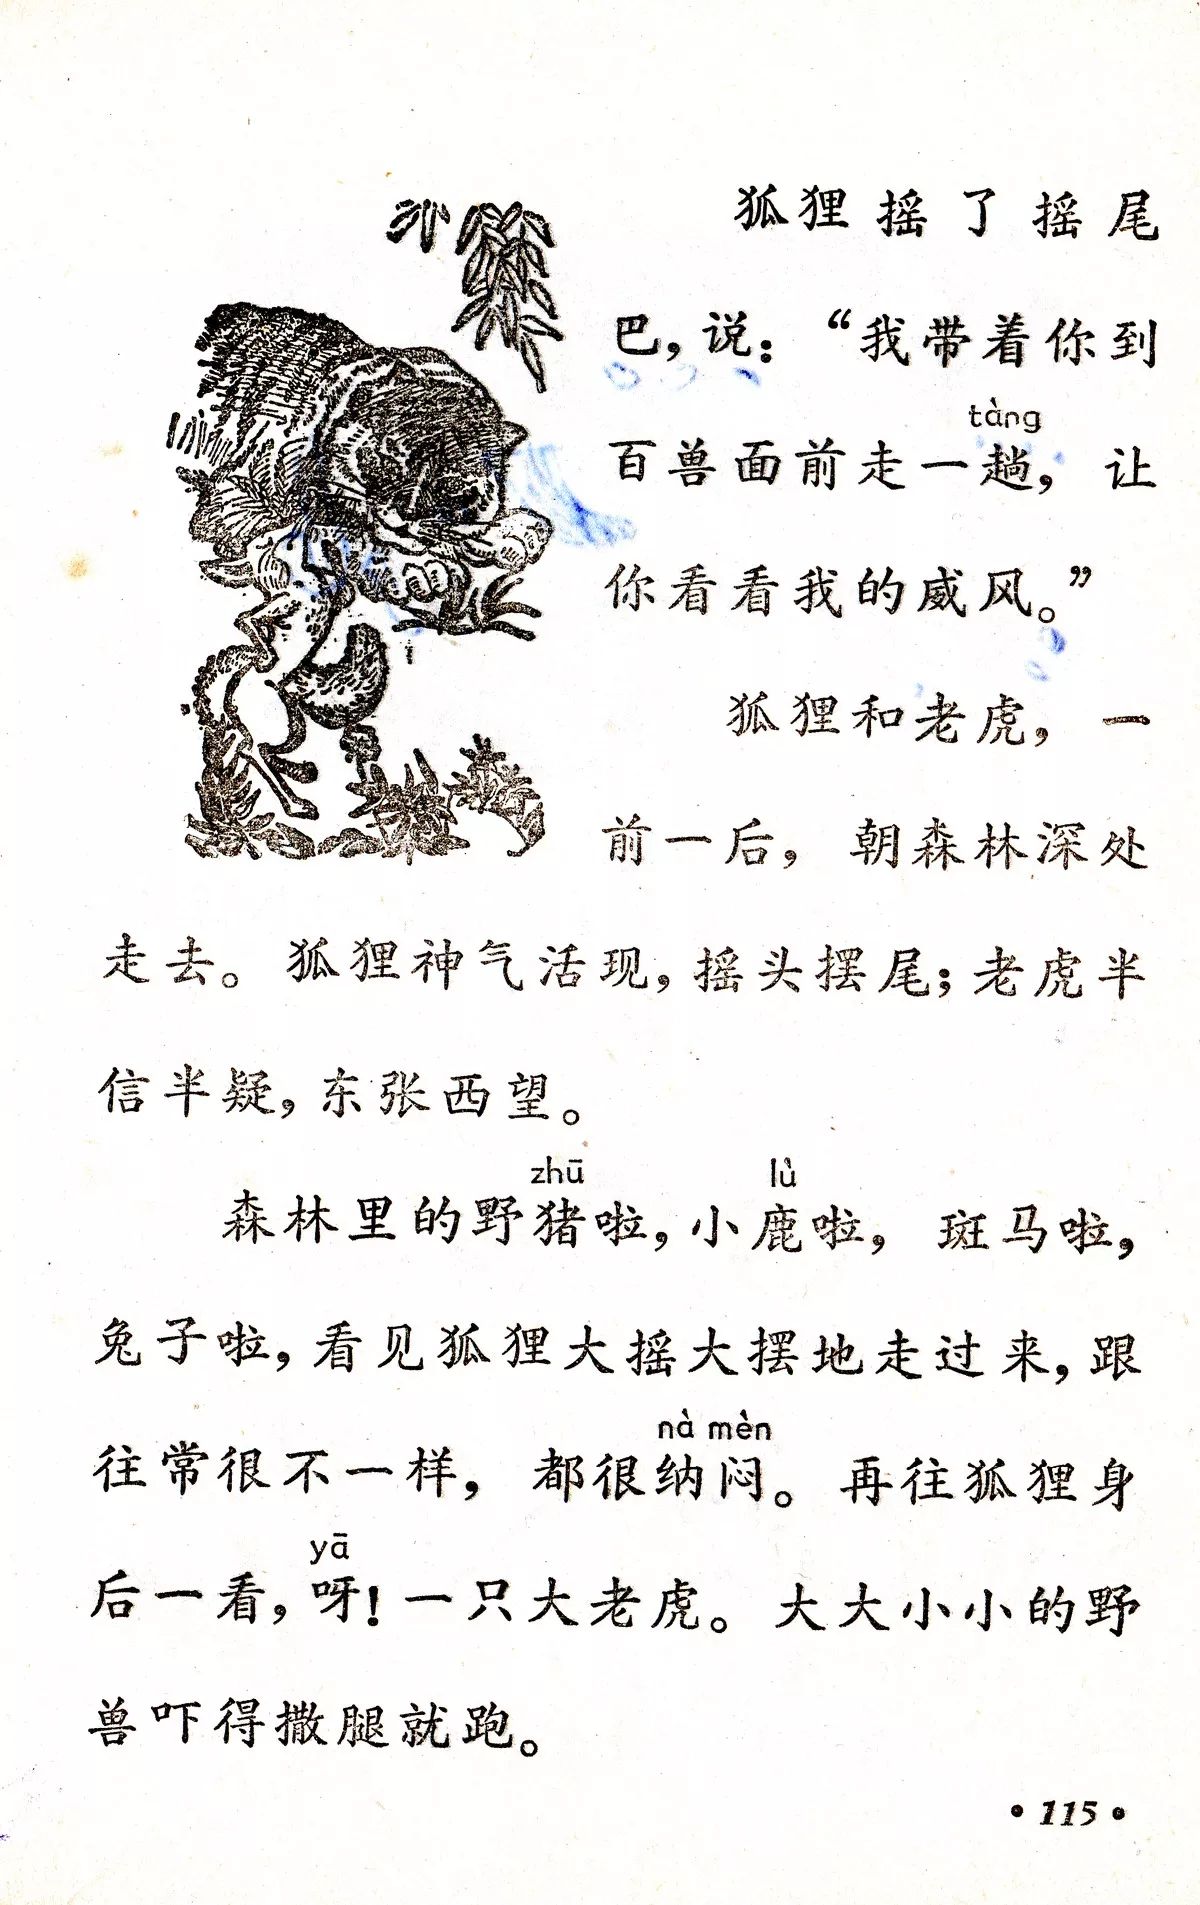 狐狸摇了摇尾
巴，说：“我带着你到
tàng
百兽面前走一趟，让
你看看我的威风。”
狐狸和老虎，一
前一后，朝森林深处
走去。狐狸神气活现，摇头摆尾；老虎半
信半疑，东张西望。
zhū lù
森林里的野猪啦，小鹿啦，斑马啦，
兔子啦，看见狐狸大摇大摆地走过来，跟
nà mèn
往常很不一样，都很纳闷。再往狐狸身
yā
后一看，呀！一只大老虎。大大小小的野
兽吓得撒腿就跑。
·115·